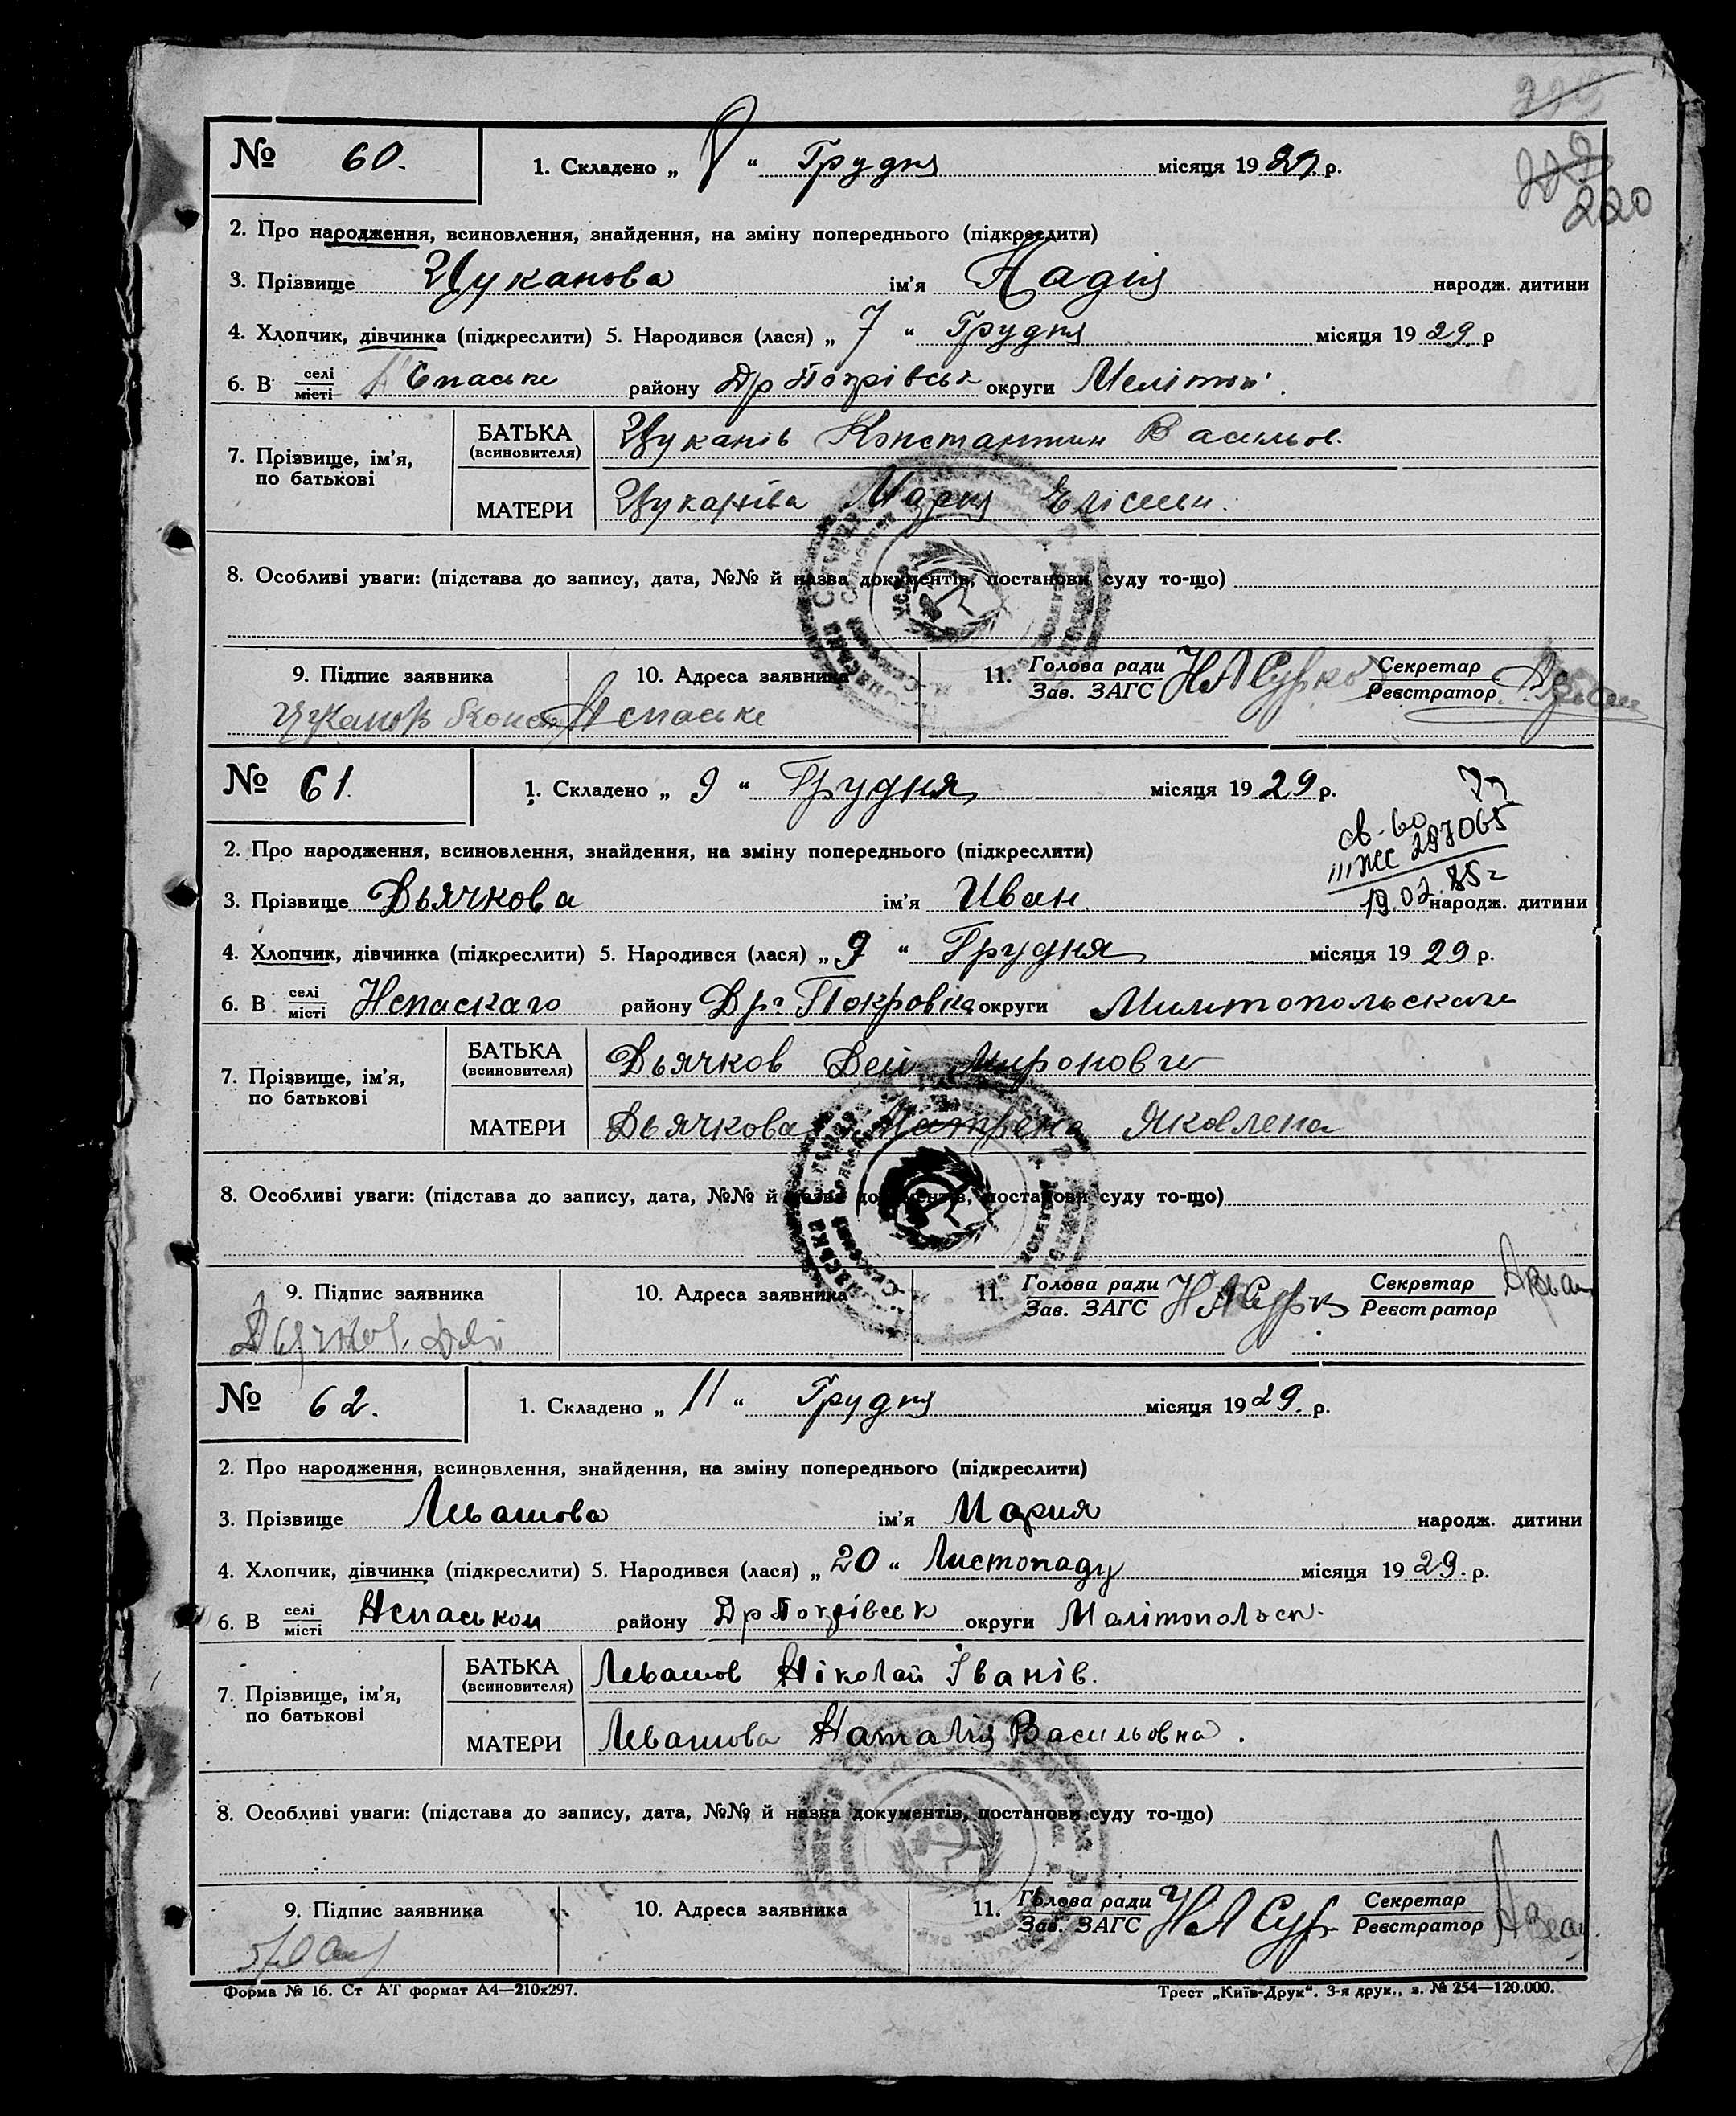 220
№ 60. 1. Складено „ 8 “ Грудня місяця 1929. р.
2. Про народження, всиновлення, знайдення, на зміну попереднього (підкреслити)
3. Прізвище Цуканова ім'я Надія народж. дитини
4. Хлопчик, дівчинка (підкреслити) 5. Народився (лася) „ 7 “ Грудня місяця 1929. р
6. В селі місті Спаське району округи
7. Прізвище, ім'я, по батькові
БАТЬКА (всиновителя) Цуканів Константин Васильов.
МАТЕРИ Цуканова Мария
8. Особливі уваги: (підстава до запису, дата, №№ й назва документів, постанови суду то-що)
9. Підпис заявника 10. Адреса заявника 11. Голова ради Зав. ЗАГС Секретар Реєстратор
№ 61. 1. Складено „ 9 “ Грудня місяця 1929 р.
2. Про народження, всиновлення, знайдення, на зміну попереднього (підкреслити)
св-во
III ЖС 297065
19.02.85г
3. Прізвище Дьячкова ім'я Иван народж. дитини
4. Хлопчик, дівчинка (підкреслити) 5. Народився (лася) „ 9 “ Грудня місяця 1929 р.
6. В селі місті Нспаскаго району Др. Покровка округи
7. Прізвище, ім'я, по батькові
БАТЬКА (всиновителя) Дьячков Миронович
МАТЕРИ Дьячкова Матрена Яковлена
8. Особливі уваги: (підстава до запису, дата, №№ й назва документів, постанови суду то-що)
9. Підпис заявника 10. Адреса заявника 11. Голова ради Зав. ЗАГС Секретар Реєстратор
№ 62. 1. Складено „ 11 “ Грудня місяця 1929. р.
2. Про народження, всиновлення, знайдення, на зміну попереднього (підкреслити)
3. Прізвище Левашова ім'я Мария народж. дитини
4. Хлопчик, дівчинка (підкреслити) 5. Народився (лася) „ 20 “ Листопаду місяця 1929. р.
6. В селі місті Нспаськом району округи
7. Прізвище, ім'я, по батькові
БАТЬКА (всиновителя) Левашов Ніколай Іванів.
МАТЕРИ Левашова Наталія Васильовна.
8. Особливі уваги: (підстава до запису, дата, №№ й назва документів, постанови суду то-що)
9. Підпис заявника 10. Адреса заявника 11. Голова ради Зав. ЗАГС Секретар Реєстратор
Форма № 16. Ст АТ формат А4—210х297. Трест „Київ-Друк“. 3-я друк., з. № 254—120.000.